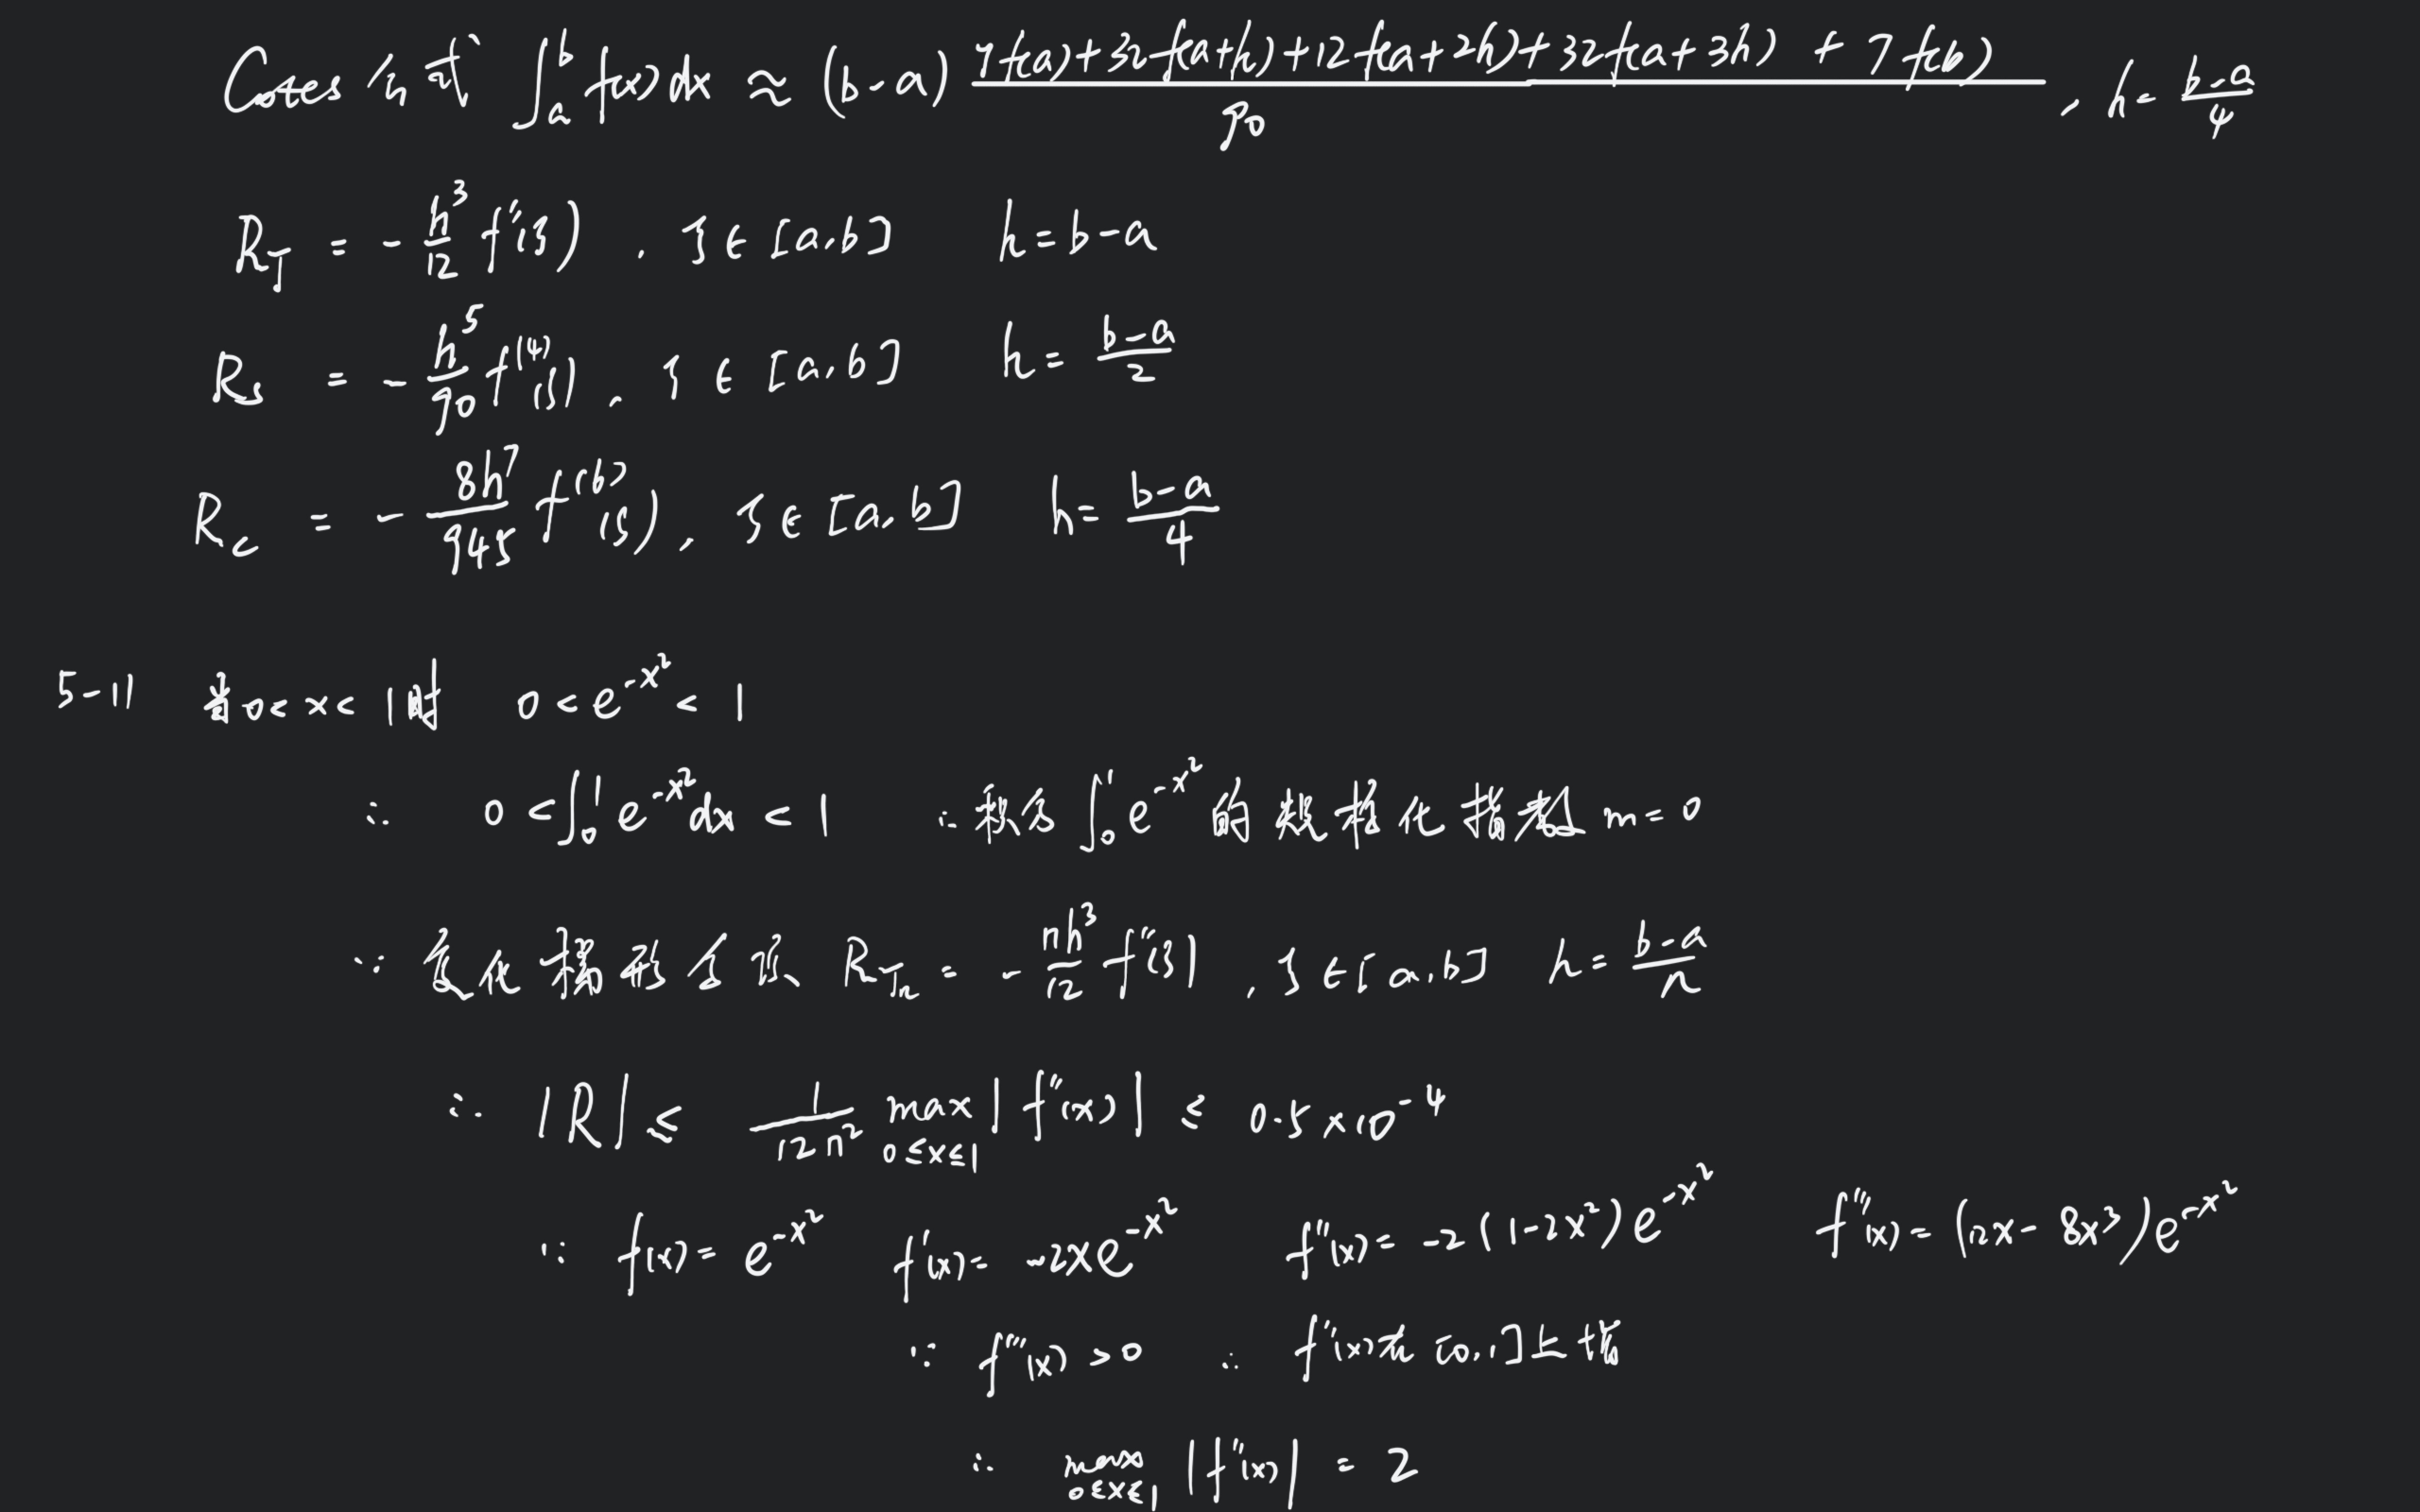 Cotes公式 ∫_a^b f(x)dx ≈ (b-a) (7f(a)+32f(a+h)+12f(a+2h)+32f(a+3h)+7f(b))/90, h=(b-a)/4
R_T = -h³/12 f''(ξ), ξ∈[a,b] h=b-a
R_S = -h⁵/90 f⁽⁴⁾(ξ), ξ∈[a,b] h=(b-a)/2
R_C = -8h⁷/945 f⁽⁶⁾(ξ), ξ∈[a,b] h=(b-a)/4
5-11 当0<x<1时 0<e^{-x²}<1
∴ 0<∫_0^1 e^{-x²}dx<1 ∴积分∫_0^1 e^{-x²}的规格化指数m=0
∵ 复化梯形公式 R_{T_n} = -nh³/12 f''(ξ), ξ∈[a,b] h=(b-a)/n
∴ |R| ≤ 1/(12n²) max_{0≤x≤1} |f''(x)| ≤ 0.5×10⁻⁴
∵ f(x)=e^{-x²} f'(x)=-2xe^{-x²} f''(x)=-2(1-2x²)e^{-x²} f'''(x)=(12x-8x³)e^{-x²}
∵ f'''(x)>0 ∴ f''(x)在[0,1]上增
∴ max_{0≤x≤1} |f''(x)| = 2